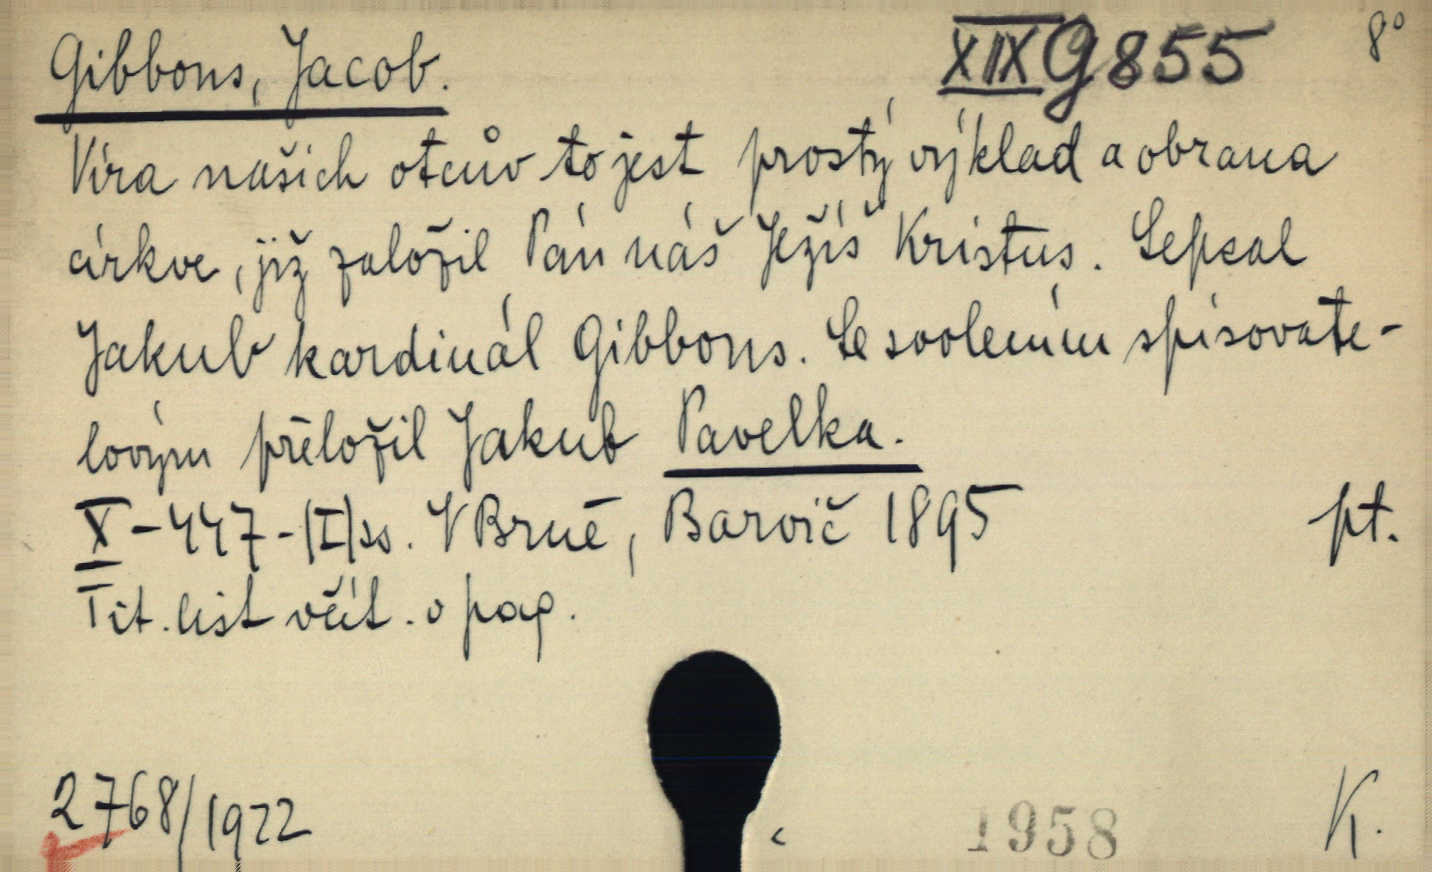 Gibbons, Jacob. XIX G 855 8°
Víra našich otcův to jest prostý výklad a obrana
církve, již založil Pán náš Ježíš Kristus. Sepsal
Jakub kardinál Gibbons. Se svolením spisovate-
lovým přeložil Jakub Pavelka.
X-447-(I)ss. V Brně, Barvič 1895 pt.
Tit. list včít. v pag.
2768/1922 1958 K.